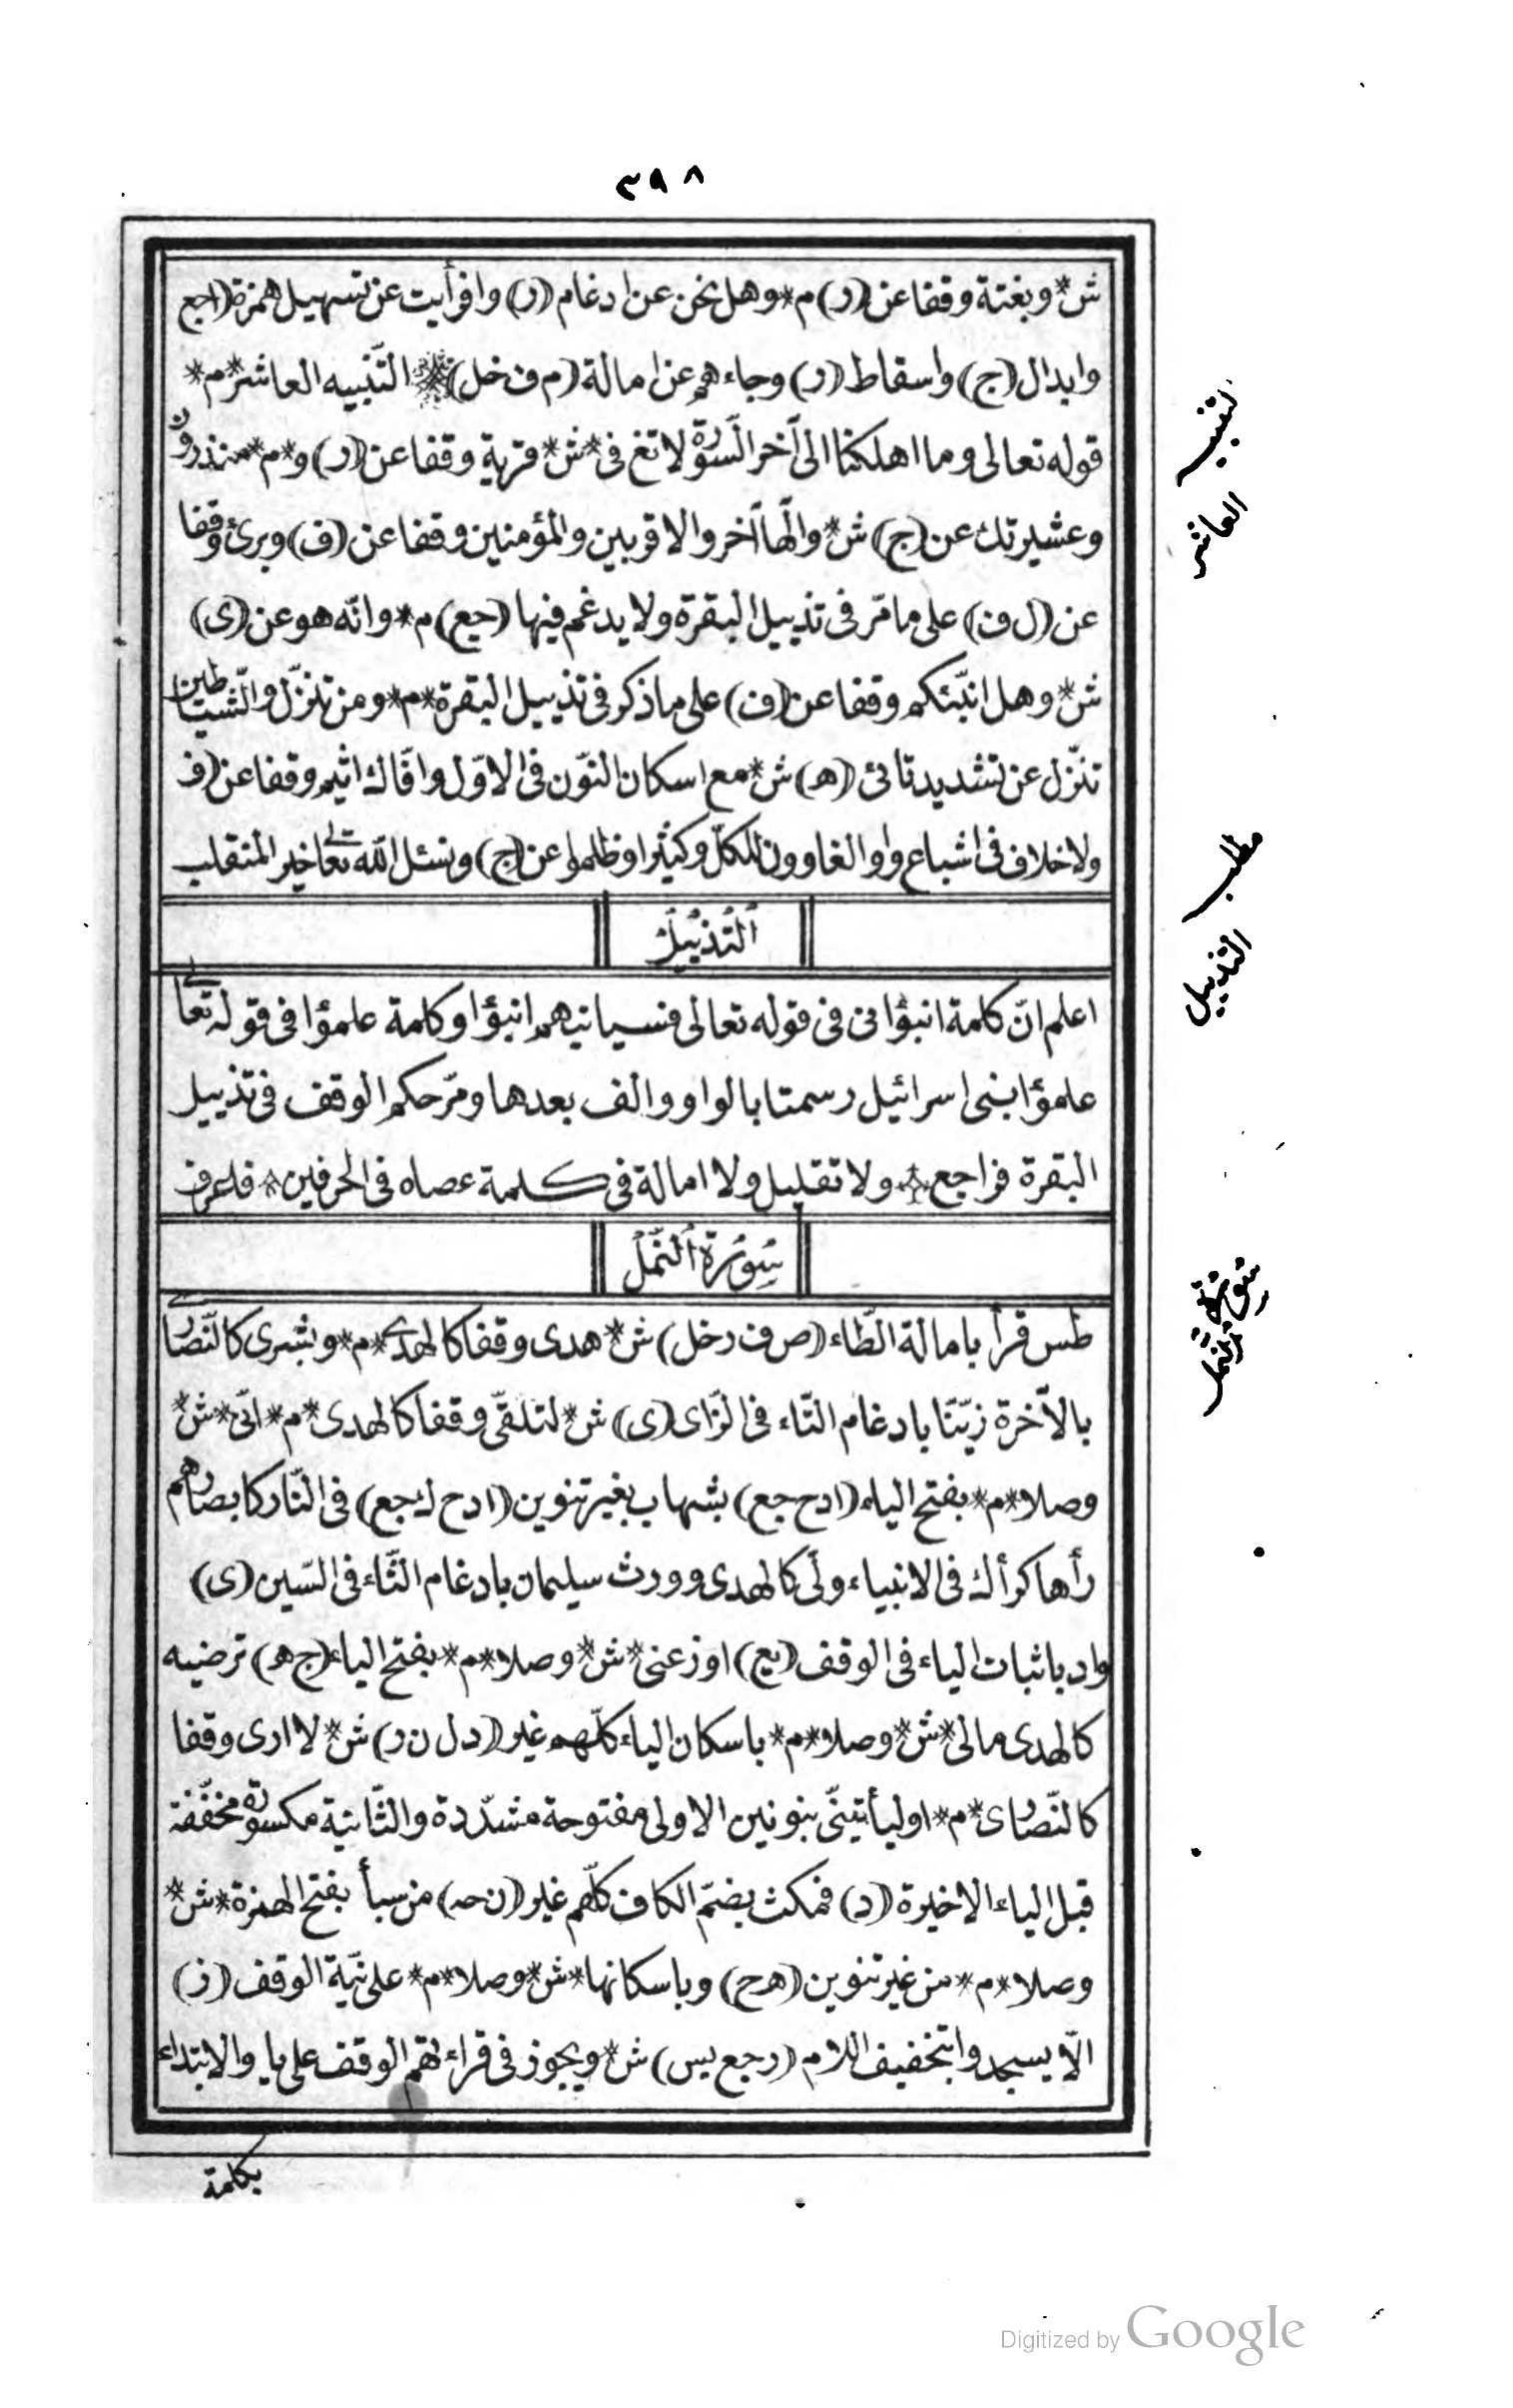 ٣٩٨
ش* وبغتة وقفا عن (ر) م* وهل نحن عن ادغام (ر) وافرأيت عن تسهيل همزة (اجع
وابدال (ج) واسقاط (ر) وجاءهم عن امالة (م ف خل) * التّنبيه العاشر* م*
قوله تعالى وما اهلكنا الى آخر السّورة لا تغ فى* ش* قرية وقفا عن (ر) و* م* منذرون
وعشيرتك عن (ج) ش* والٰها آخر والاقربين والمؤمنين وقفا عن (ف) وبرئ وقفا
عن (ل ف) على ما مرّ فى تذييل البقرة ولا يدغم فيها (جيع) م* وانّه هو عن (ى)
ش* وهل انبّئكم وقفا عن (ف) على ما ذكر فى تذييل البقرة* م* ومن تنزّل والشّياطين
تنزّل عن تشديد تائى (هـ) ش* مع اسكان النّون فى الاوّل وافّاك اثيم وقفا عن (ف
ولا خلاف فى اشباع واو الغاوون للكلّ وكثيرا وظلموا عن (ج) ونسئل الله تعالى خير المنقلب
التّذييل
اعلم انّ كلمة انبؤا فى قوله تعالى فسيأتيهم انبؤا وكلمة علمؤا فى قوله تعالى
علمؤا بنى اسرائيل رسمتا بالواو والف بعدها ومرّ حكم الوقف فى تذييل
البقرة فراجع * ولا تقليل ولا امالة فى كلمة عصاه فى الحرفين * فلعرف
سورة النّمل
طس قرأ بامالة الطّاء (ص ف ر خل) ش* هدى وقفا كالهدى* م* وبشرى كالنّصارى
بالآخرة زيّنّا بادغام التّاء فى الزّاى (ى) ش* لتلقّى وقفا كالهدى* م* انّى* ش*
وصلا* م* بفتح الياء (ا د ح جع) بشهاب بغير تنوين (ا د ح ك جع) فى النّار كابصارهم
رأها كرأك فى الانبياء ولّى كالهدى وورث سليمان بادغام الثّاء فى السّين (ى)
واد باثبات الياء فى الوقف (يع) اوزعنى* ش* وصلا* م* بفتح الياء (ج هـ) ترضيه
كالهدى مالى* ش* وصلا* م* باسكان الياء كلّهم غير (د ل ن ر) ش* لا ارى وقفا
كالنّصارى* م* اوليأتينّى بنونين الاولى مفتوحة مشدّدة والثّانية مكسورة مخفّفة
قبل الياء الاخيرة (د) فمكث بضمّ الكاف كلّهم غير (ن حه) من سبأ بفتح الهمزة* ش*
وصلا* م* من غير تنوين (هـ ح) وباسكانها* ش* وصلا* م* على نيّة الوقف (ز)
الّا يسجدوا بتخفيف اللام (ر جع يس) ش* ويجوز فى قراءتهم الوقف على يا والابتداء
بكلمة
التنبيه
العاشر
مطلب
التذييل
سورة النمل
Digitized by Google